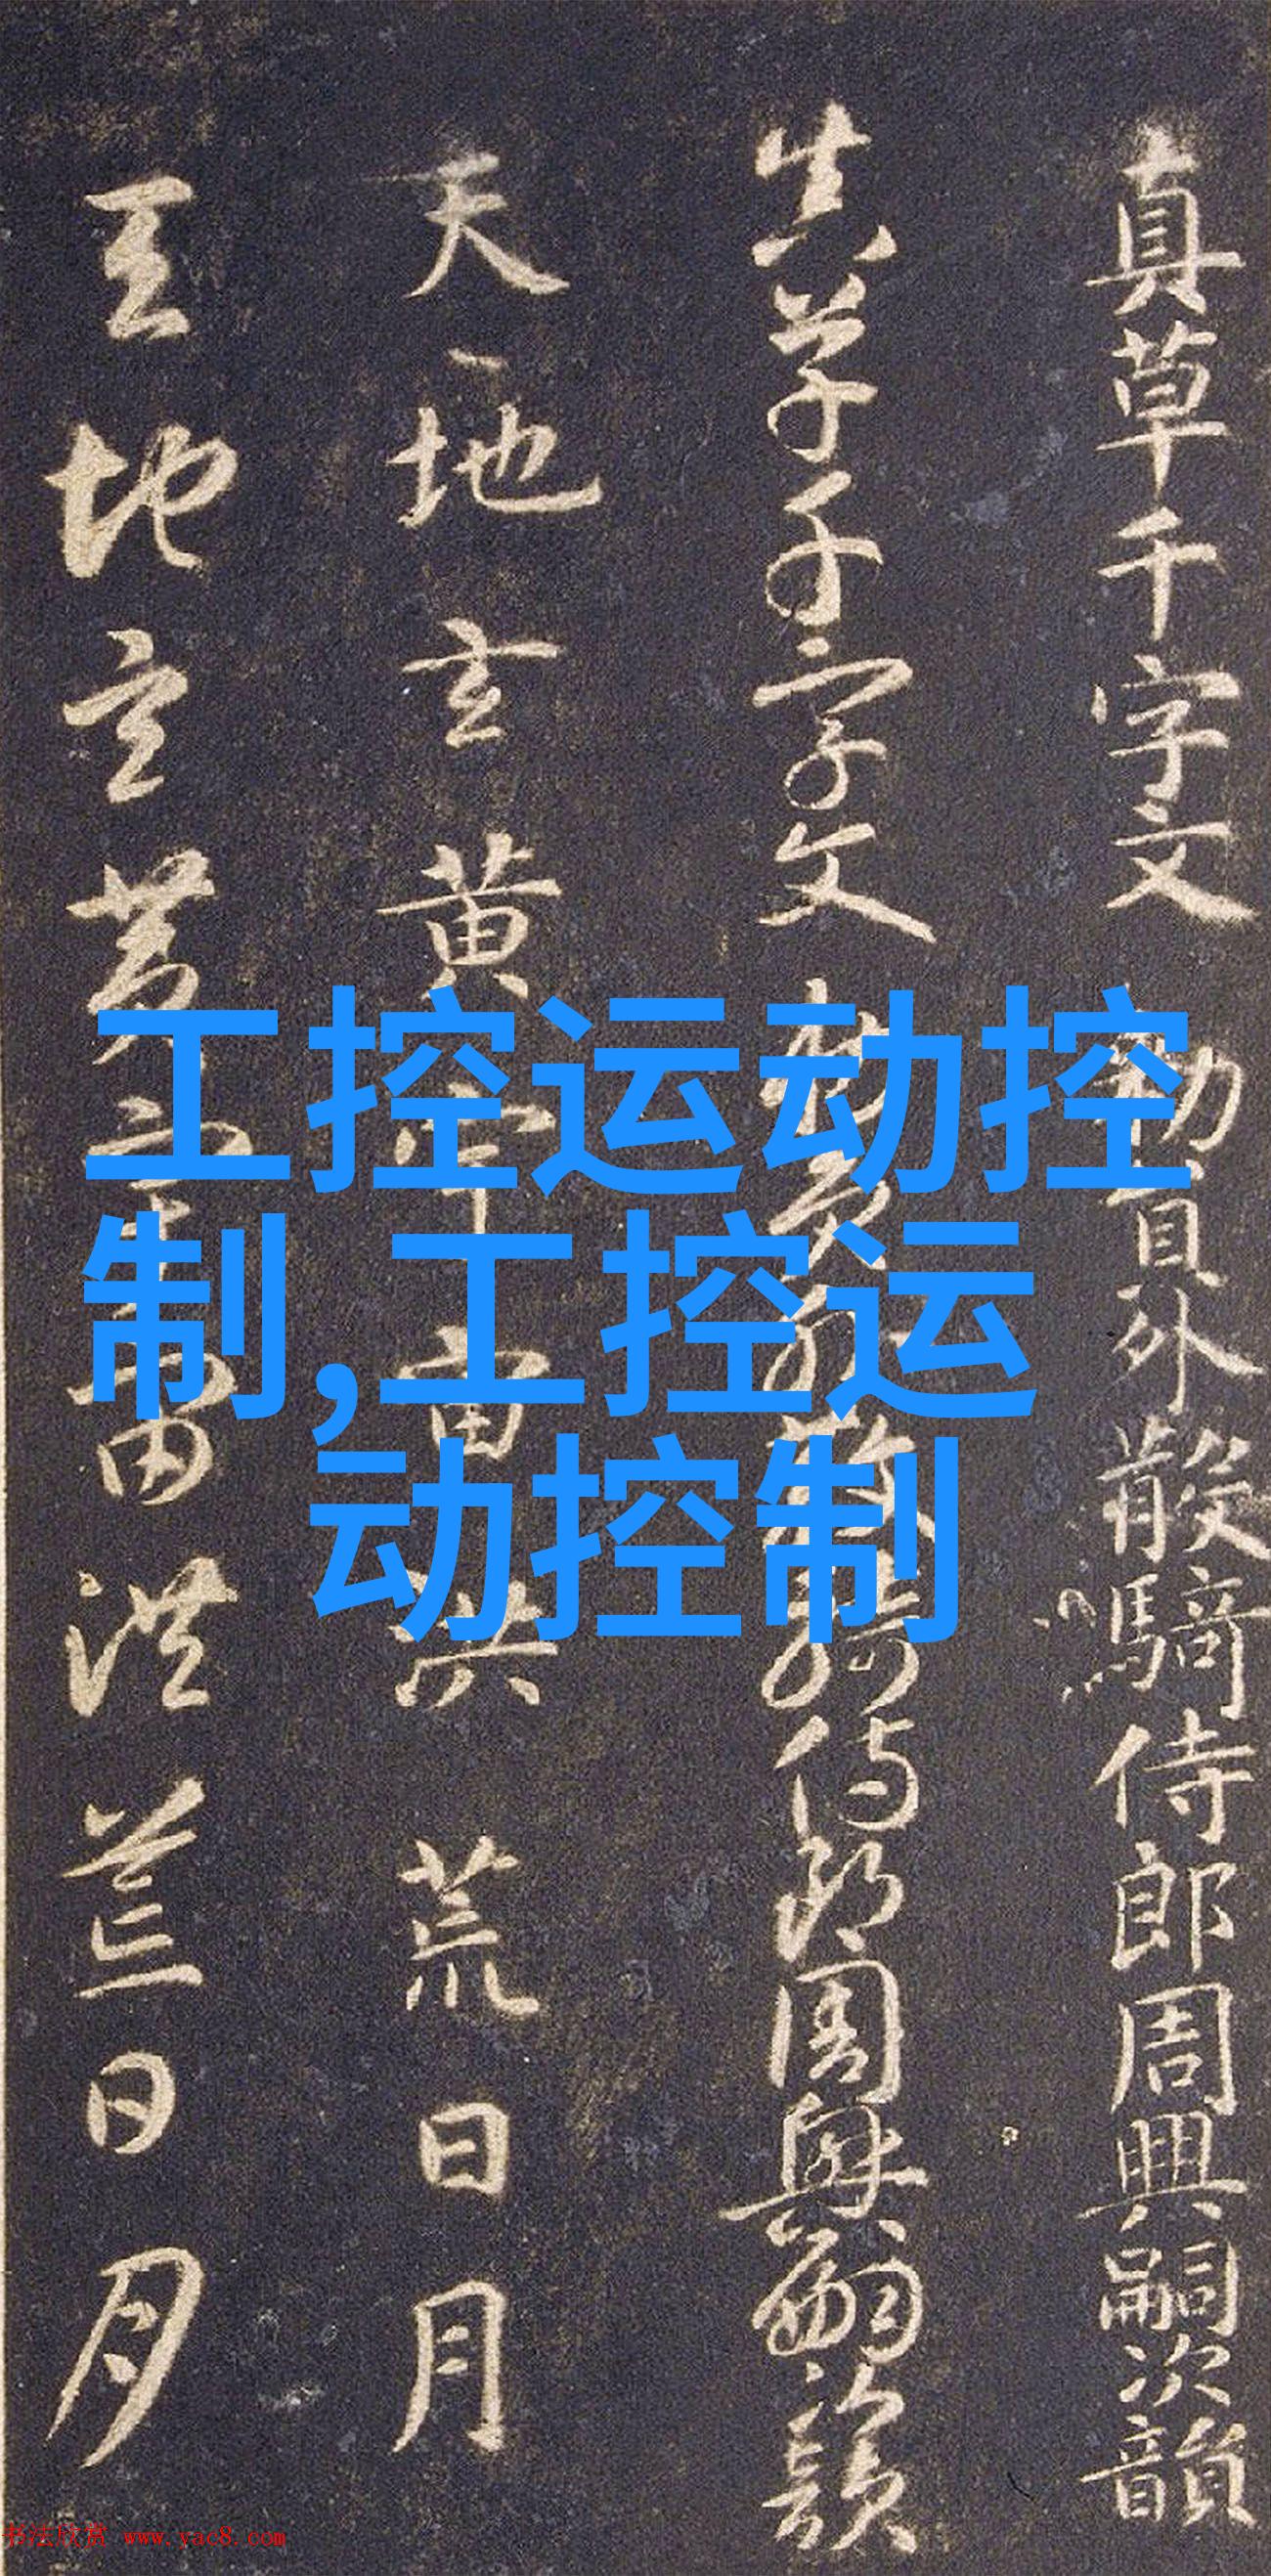 真草千字文 勅員外散騎侍郎周興嗣次韻
真草千字文 勅員外散騎侍郎周興嗣次韻
天地玄黄宇宙洪荒日月
天地玄黄宇宙洪荒日月
工控运动控
制,工控运
动控制
书法欣赏 www.yac8.com